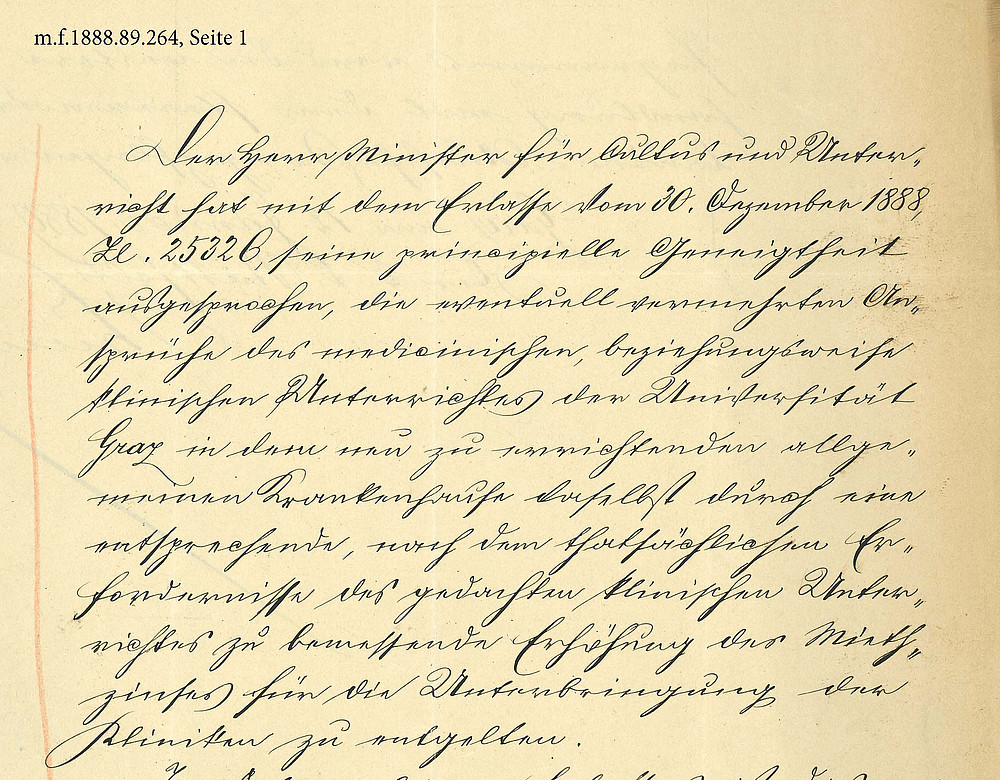 m.f.1888.89.264, Seite 1
Der Herr Minister für Cultus und Unter-
richt hat mit dem Erlasse vom 30. Dezember 1888,
Zl. 25326, seine principielle Geneigtheit
ausgesprochen, die eventuell vermehrten An-
sprüche des medicinischen, beziehungsweise
klinischen Unterrichtes der Universität
Graz in dem neu zu errichtenden allge-
meinen Krankenhause daselbst durch eine
entsprechende, nach dem thatsächlichen Er-
fordernisse des gedachten klinischen Unter-
richtes zu bemessende Erhöhung des Mieth-
zinses für die Unterbringung der
Kliniken zu entgelten.